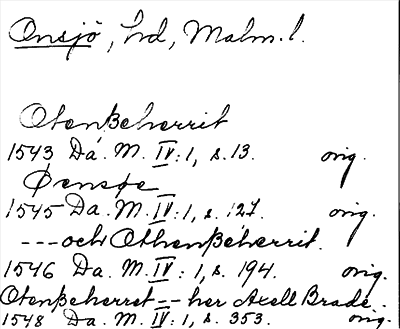 Onsjö, hd, Malm. l.
Otenßeherrit
1543 Da. M. IV: 1, s. 13. orig.
Øensøe
1545 Da. M. IV: 1, s. 127. orig.
--- och Othenßeherrit.
1546 Da. M. IV: 1, s. 194. orig.
Otenßeherret -- her Axell Brade.
1548 Da. M. IV: 1, s. 353. orig.